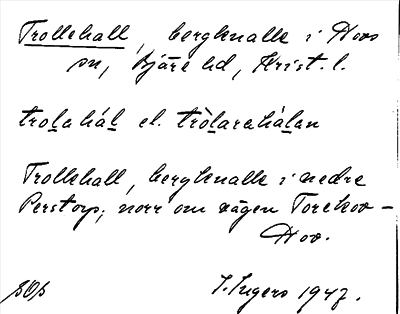 Trollehall, bergknalle i Hovs
sn, Bjäre hd, Krist. l.
trolahál el. tròlarahálan
Trollehall, bergknalle i nedre
Perstorp, norr om vägen Torekov –
Hov.
I. Ingers 1947.